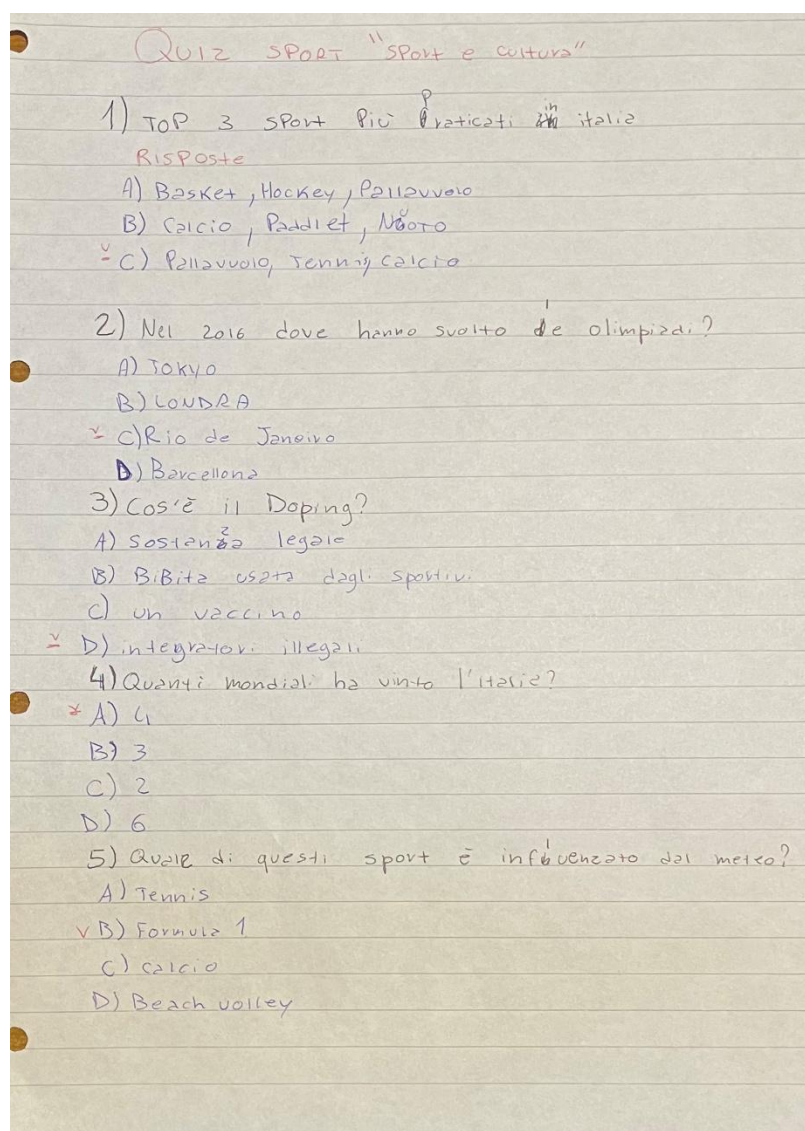 QUIZ SPORT "Sport e cultura"
1) TOP 3 sport più praticati in italia
RISPOSTE
A) Basket, Hockey, Pallavvolo
B) Calcio, Paddlet, NUOTO
v C) Pallavvolo, Tennis, calcio
2) Nel 2016 dove hanno svolto le olimpiadi?
A) TOKYO
B) LONDRA
v C) Rio de Janeiro
D) Barcellona
3) Cos'è il Doping?
A) Sostanza legale
B) BiBita usata dagli sportivi
C) un vaccino
v D) integratori illegali
4) Quanti mondiali ha vinto l'italia?
v A) 4
B) 3
C) 2
D) 6
5) Quale di questi sport è influenzato dal meteo?
A) Tennis
v B) Formula 1
C) calcio
D) Beach volley